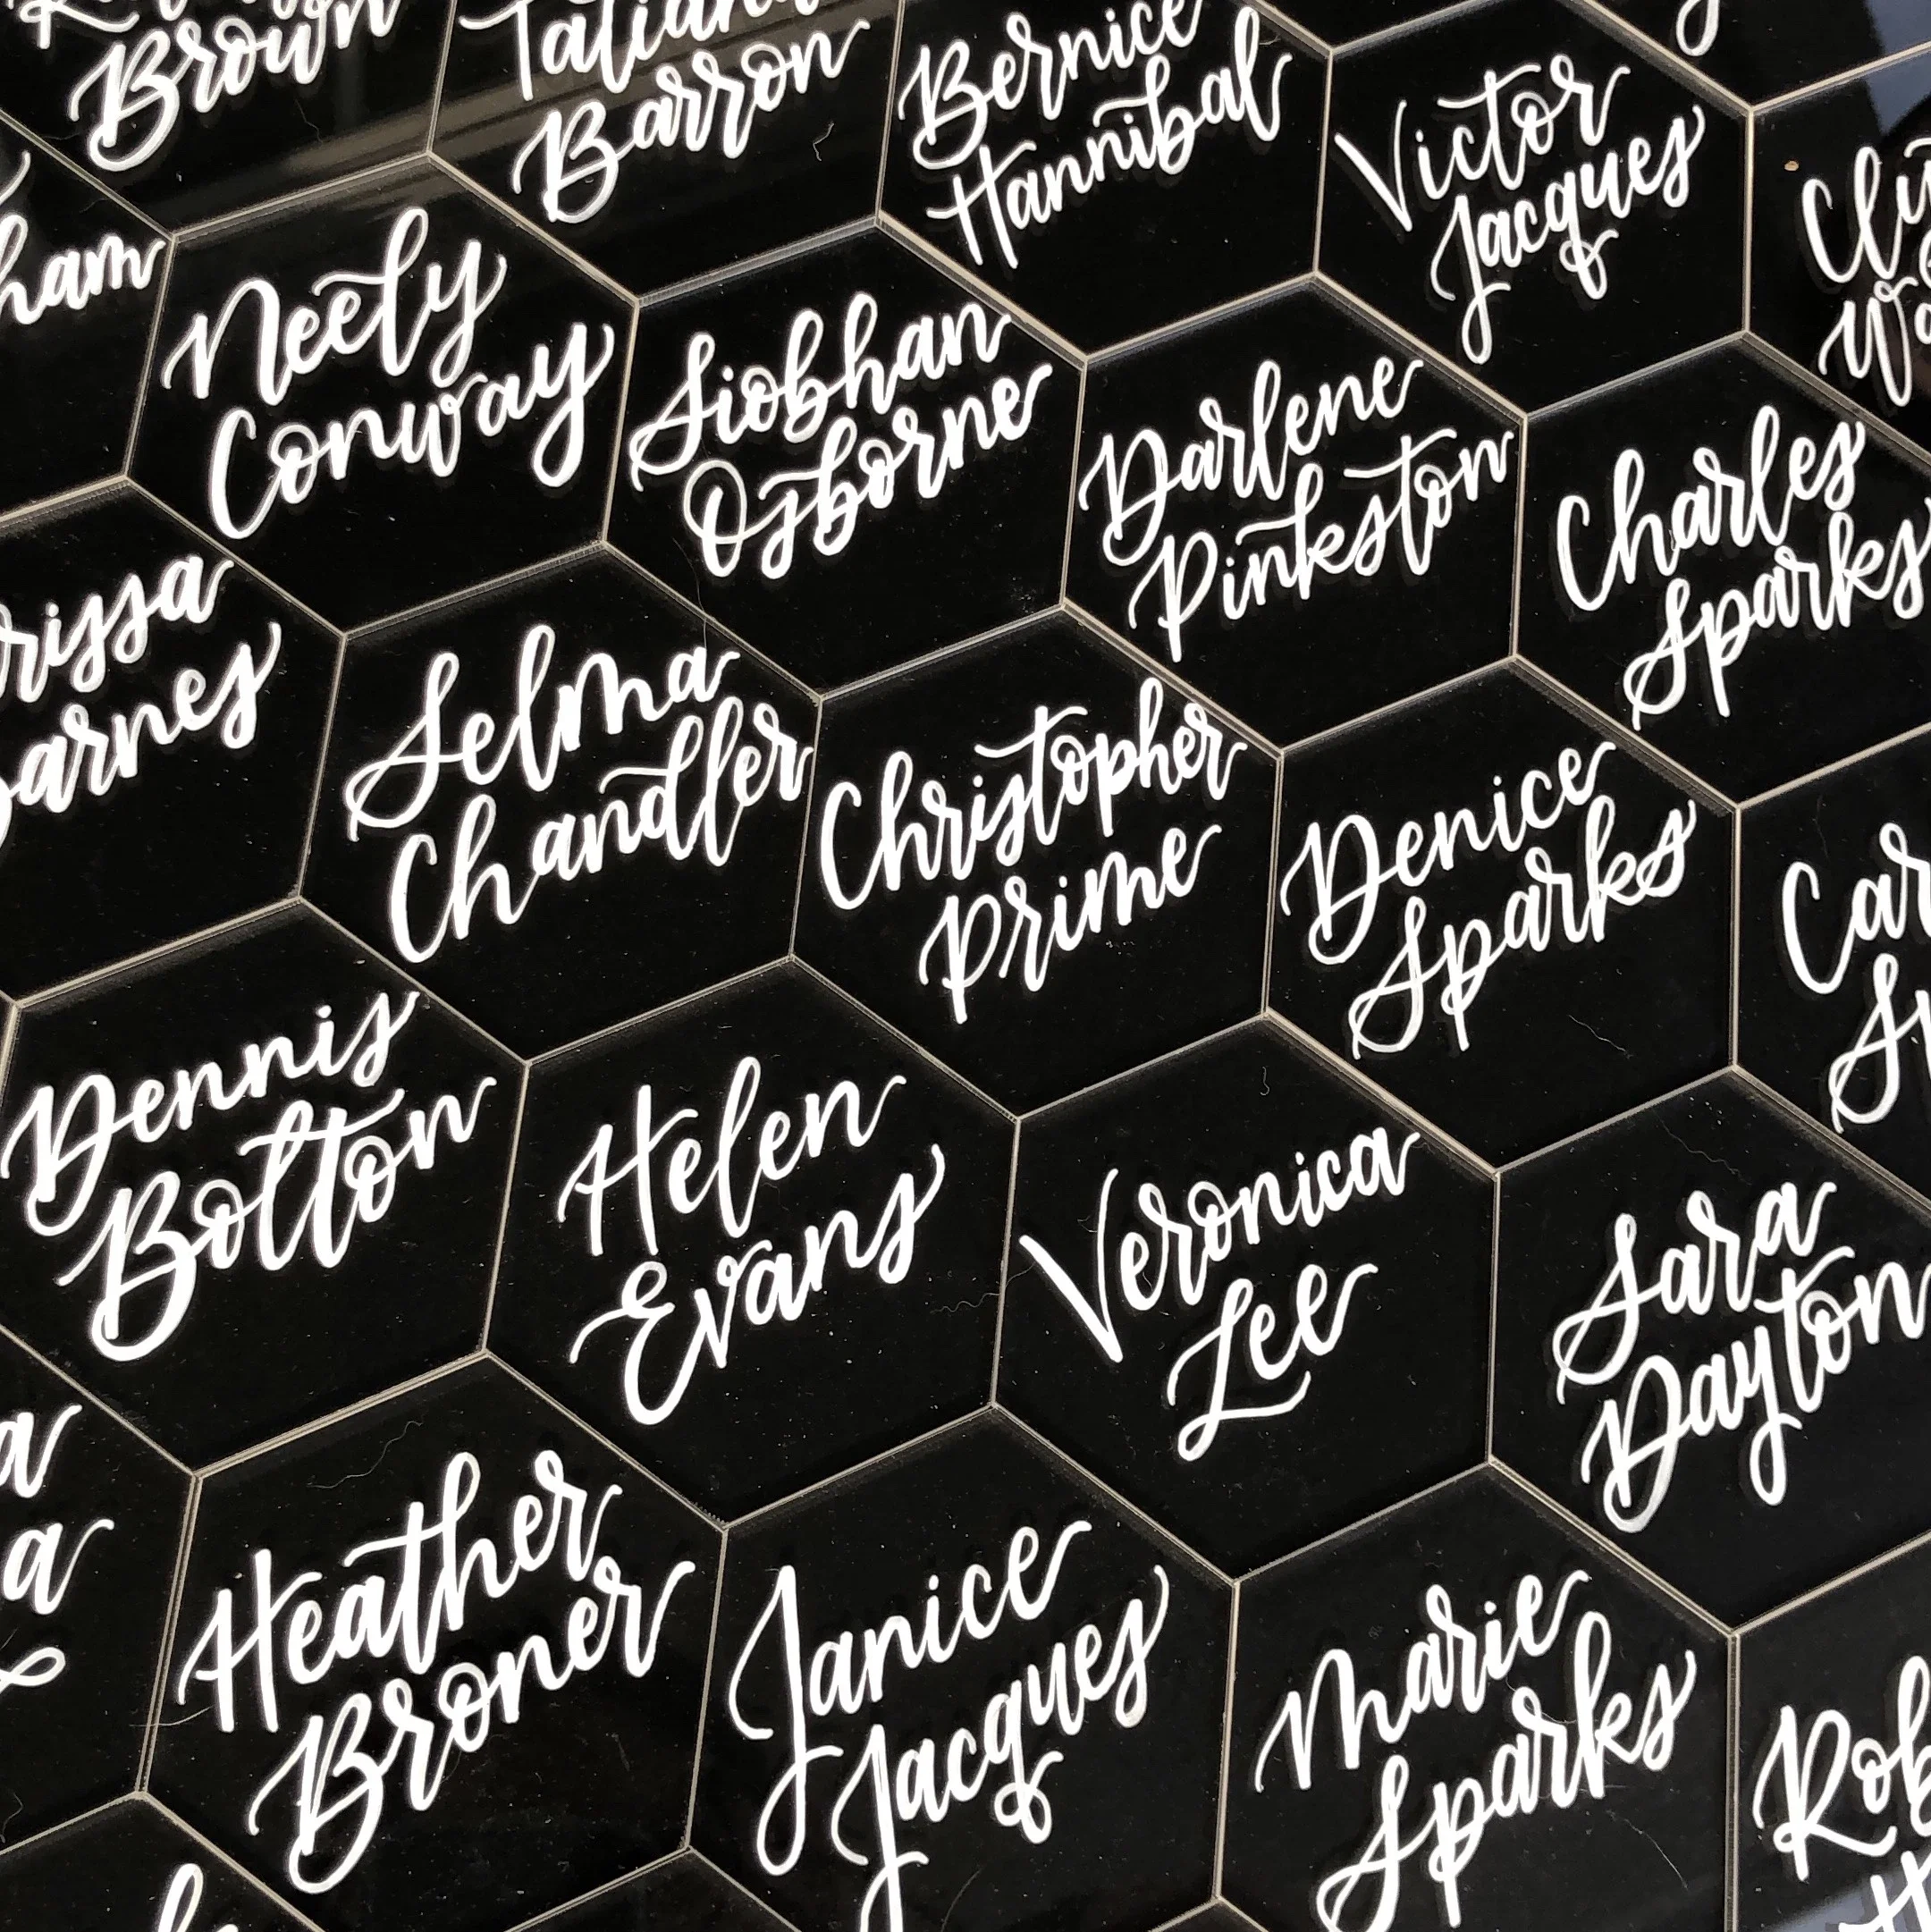 Brown
Tatiana
Barron
Bernice
Hannibal
Victor
Jacques
Neely
Conway
Siobhan
Osborne
Darlene
Pinkston
Charles
Sparks
Selma
Chandler
Christopher
Prime
Denice
Sparks
Dennis
Bolton
Helen
Evans
Veronica
Lee
Sara
Dayton
Heather
Broner
Janice
Jacques
Marie
Sparks